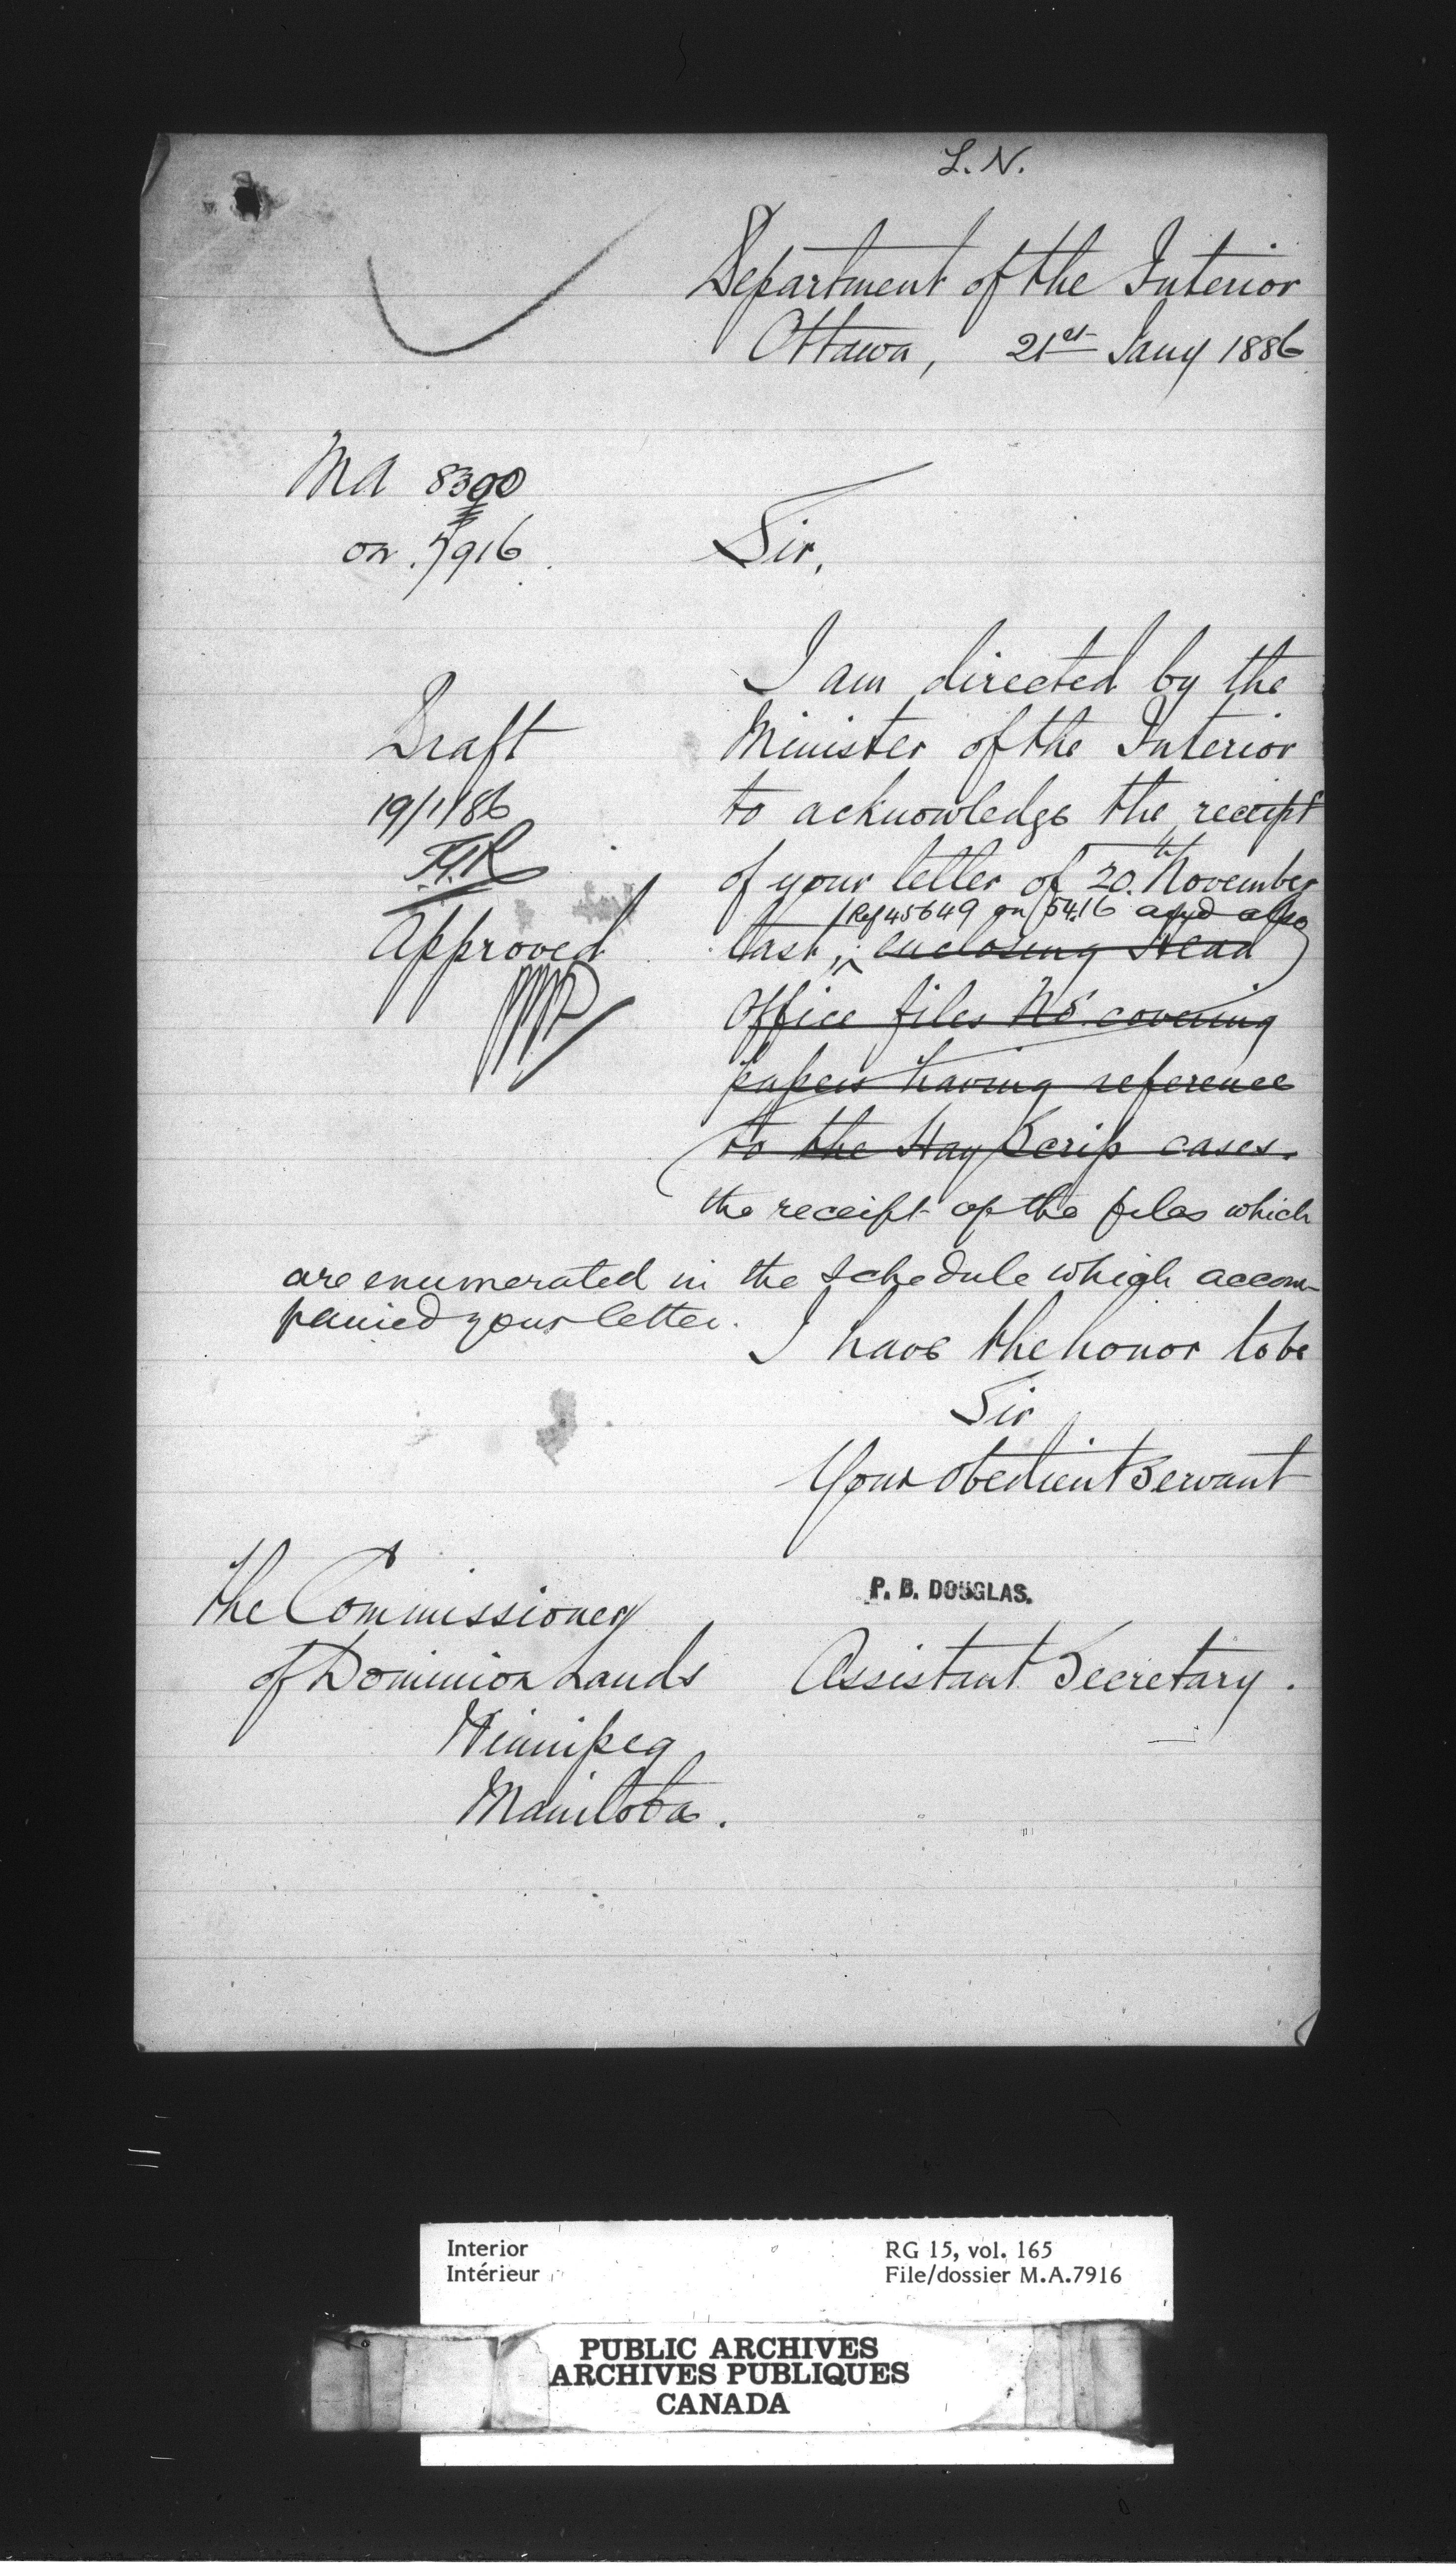 L. N.
Department of the Interior
Ottawa, 21st Jany 1886
MA 8390
on 7916.
Sir,
I am directed by the
Minister of the Interior
to acknowledge the receipt
of your letter of 20th November
Ref 45649 on 5416 and also
last, enclosing Head
Office files No. covering
papers having reference
to the Hay Scrip cases.
the receipt of the files which
are enumerated in the schedule which accom-
panied your letter.
Draft
19/1/86
Approved
I have the honor to be
Sir
Your obedient Servant
P. B. DOUGLAS.
Assistant Secretary.
The Commissioner
of Dominion Lands
Winnipeg
Manitoba.
Interior
Intérieur
RG 15, vol. 165
File/dossier M.A.7916
PUBLIC ARCHIVES
ARCHIVES PUBLIQUES
CANADA